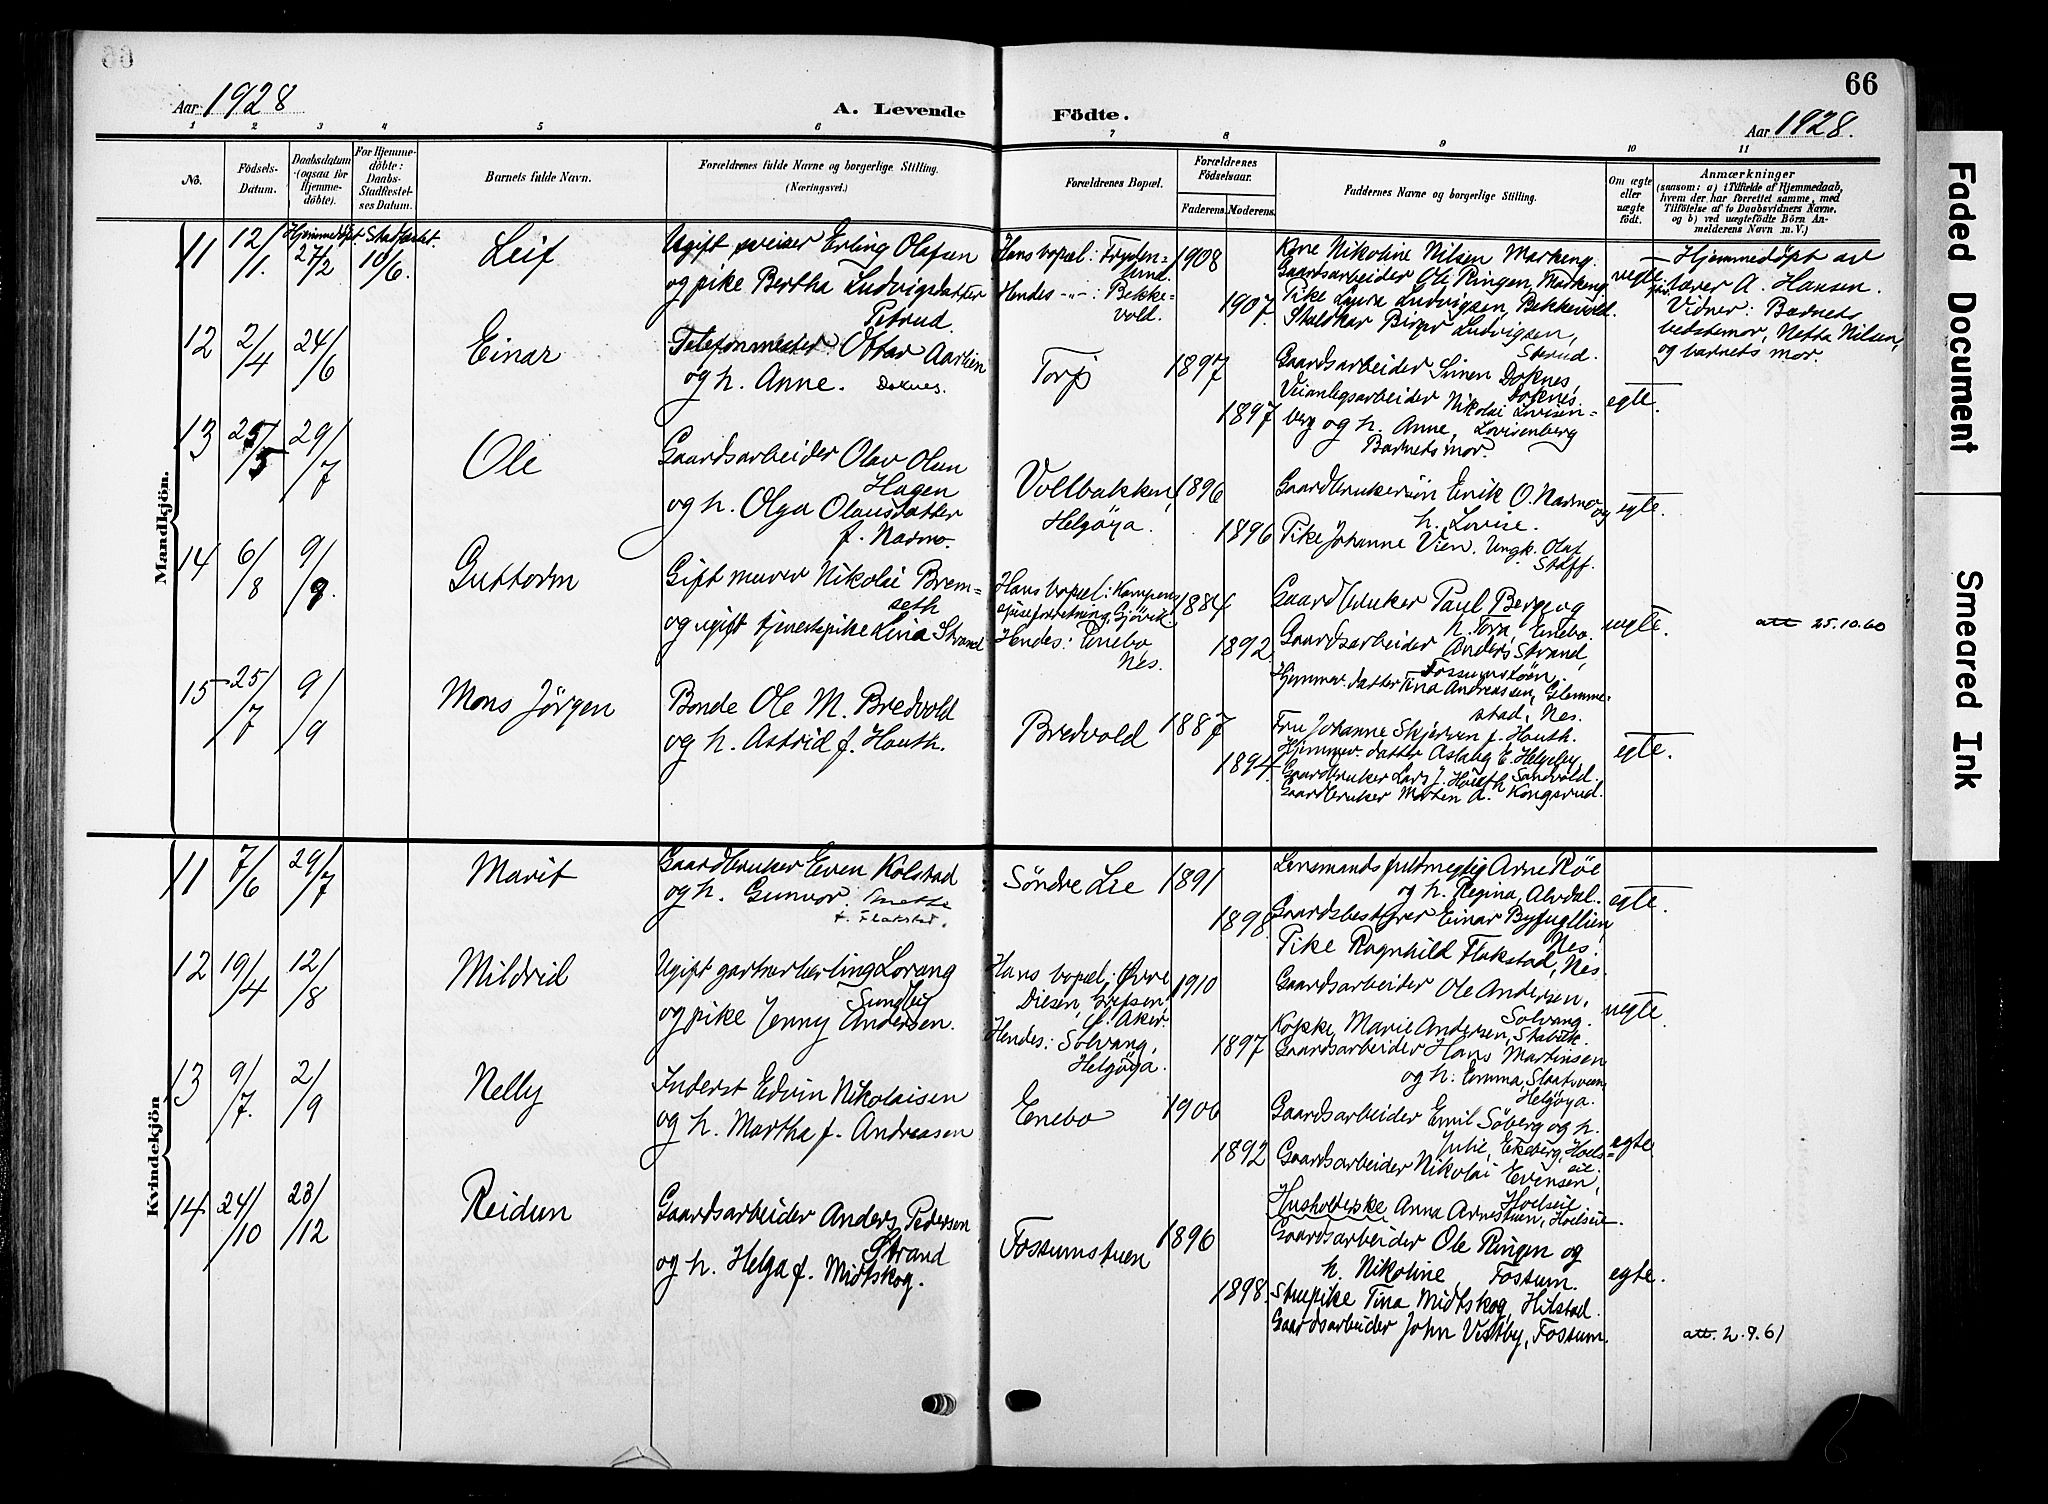 66
Aar 1928
A. Levende Födte.
Aar 1928.
1 2 3 4 5 6 7 8 9 10 11
No.
Födsels-
Datum.
Daabsdatum
(ogsaa for
Hjemme-
döbte).
For Hjemme-
döbte:
Daabs-
Stadfæstel-
ses Datum.
Barnets fulde Navn.
Forældrenes fulde Navne og borgerlige Stilling.
(Næringsvei.)
Forældrenes Bopæl.
Forældrenes
Födselsaar.
Faderens. Moderens.
Faddernes Navne og borgerlige Stilling.
Om ægte
eller
uægte
födt.
Anmærkninger
(saasom: a) i Tilfælde af Hjemmedaab,
hvem der har forrettet samme, med
Tilföielse af to Daabsvidners Navne,
og b) ved uægtefödte Börn An-
melderens Navn m. V.)
Mandkjön.
11 12/1. Hjemmedöpt 27/2 Stadfæstet. 10/6. Leif
Ugift sveiser Erling Olafsen
og pike Bertha Ludvigsdatter
Petrud.
Hans bopæl: Fryden-
lund.
Hendes -"-: Bekke-
vold.
1908
1907.
Kone Nikoline Nilsen Markeng.
Gaardsarbeider Ole Ringen, Markeng
Pike Laura Ludvigsen, Bekkevold.
Staldkar Birger Ludvigsen,
uegte
Hjemmedöpt av
lærer A. Hansen.
Vidner: Barnets
bedstemor, Netta Nilsen,
og barnets mor.
12 2/4 24/6 Einar
Telefonmester Ottar Aarlien
og h. Anne. Doknes.
Torp
1897
1897
Gaardsarbeider Simen Doknes,
Doknes.
Veianlegsarbeider Nikolai Lovisen-
berg og h. Anne, Lovisenberg
Barnets mor.
egte.
13 25/5 29/7 Ole
Gaardsarbeider Olav Olsen
Hagen
og h. Olga Olausdatter
f. Narmo.
Vollbakken,
Helgøya.
1896
1896
Gaardbrukersön Erik O. Narmo og
h. Lovise.
Pike Johanne Vien. Ungk. Olaf
Staff.
egte.
14 6/8 9/9. Guttorm
Gift murer Nikolai Brem-
seth
og ugift tjenestepike Lina Strand
Hans bopæl: Kampens
spiseforretning, Gjövik.
Hendes: Enebo,
Nes.
1884
1892
Gaardbruker Paul Berge og
h. Tora, Enebo.
Gaardsarbeider Anders Strand,
Fossumstöen.
Hjemmev. datter Tina Andreassen, Glemme-
stad, Nes.
uegte.
att 25.10.60
15 25/7 9/9 Mons Jørgen
Bonde Ole M. Bredvold
og h. Astrid f. Houth.
Bredvold
1887
1894
Fru Johanne Skjerven f. Houth.
Hjemmev. datter Aslaug E. Helgeby,
Gaardbruker Lars J. Houth, Sandvold.
Gaardbruker Morten A. Kongsrud.
egte.
Kvindekjön
11 7/6 29/7 Marit
Gaardbruker Even Kolstad
og h. Gunvor.
f. Flakstad.
Söndre Lie
1891
1898
Lensmandsfuldmegtig Arne Röe
og h. Regina, Alvdal.
Gaardsbestyrer Einar Byfuglien,
Nes.
Pike Ragnhild Flakstad, Nes.
egte.
12 19/4 12/8 Mildrid
Ugift gartnerlærling Lorang
Sundby
og pike Jenny Andersen.
Hans bopæl: Övre
Disen, Grefsen,
V. Aker.
Hendes: Solvang,
Helgöya.
1910
1897
Gaardsarbeider Ole Andersen,
Solvang.
Kokke Marie Andersen, Stabæk.
Gaardsarbeider Hans Martinsen
og h. Emma,
Helgöya.
uegte.
13 9/7. 2/9 Nelly
Inderst Edvin Nikolaisen
og h. Martha f. Andreasen
Enebo
1900
1892
Gaardsarbeider Emil Söberg og h.
Julie, Ekeberg, Hoel-
sie.
Gaardsarbeider Nikolai Evensen,
Hoelseie
Husholderske Anna Arnestuen, Hoelseie.
egte
14 24/10 23/12 Reidun
Gaardsarbeider Anders Pedersen
Strand
og h. Helga f. Midtskog.
Fossumstuen
1896
1898.
Gaardsarbeider Ole Ringen og
h. Nikoline, Fossum.
Stuepike Tina Midtskog, Hilstad.
Gaardsarbeider John Vestby, Fossum.
egte.
att. 2.9.61
Faded Document
Smeared Ink